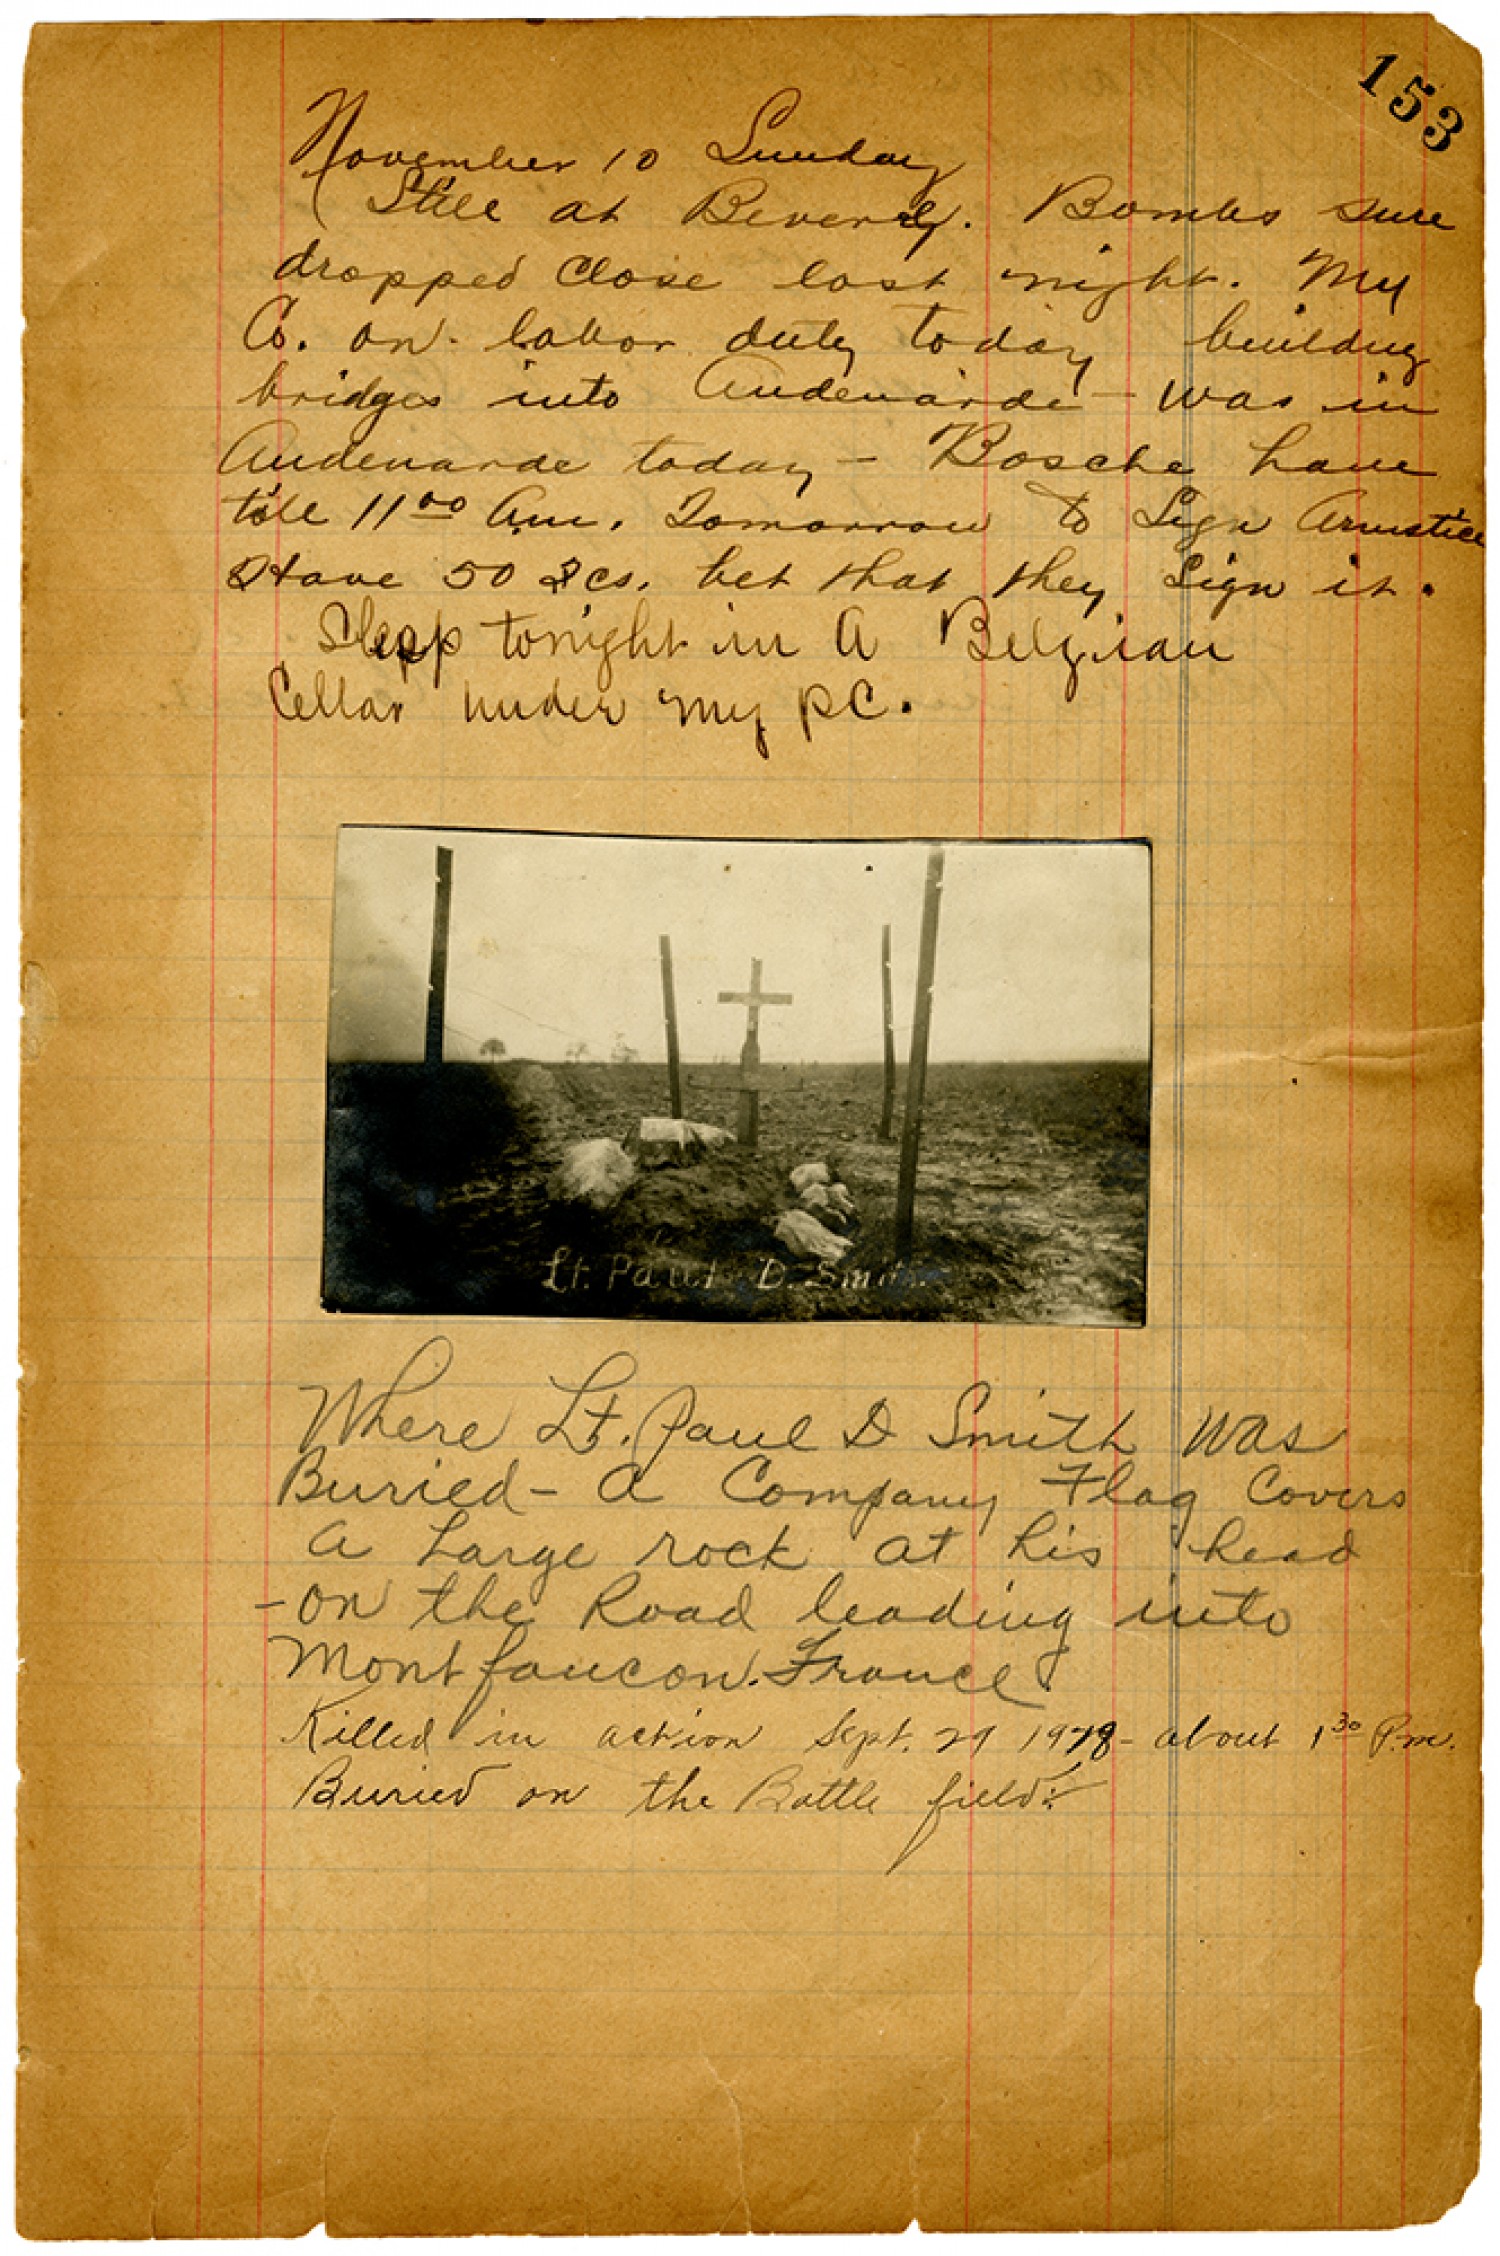 153
November 10 Sunday
Still at Beverly. Bombs sure
dropped close last night. My
Co. on labor duty today building
bridges into Audenarde - was in
Audenarde today - Bosche have
till 11 00 Am. Tomorrow to Sign Armistice
Have 50 Fcs. bet that they sign it.
Sleep tonight in A Belgian
Cellar under my PC.
Lt. Paul D. Smith.
Where Lt. Paul D Smith was
Buried - A Company Flag Covers
a Large rock at his head
- on the Road leading into
Montfaucon. France.
Killed in action Sept. 29 1918 - about 1 30 P.m.
Buried on the Battle field.